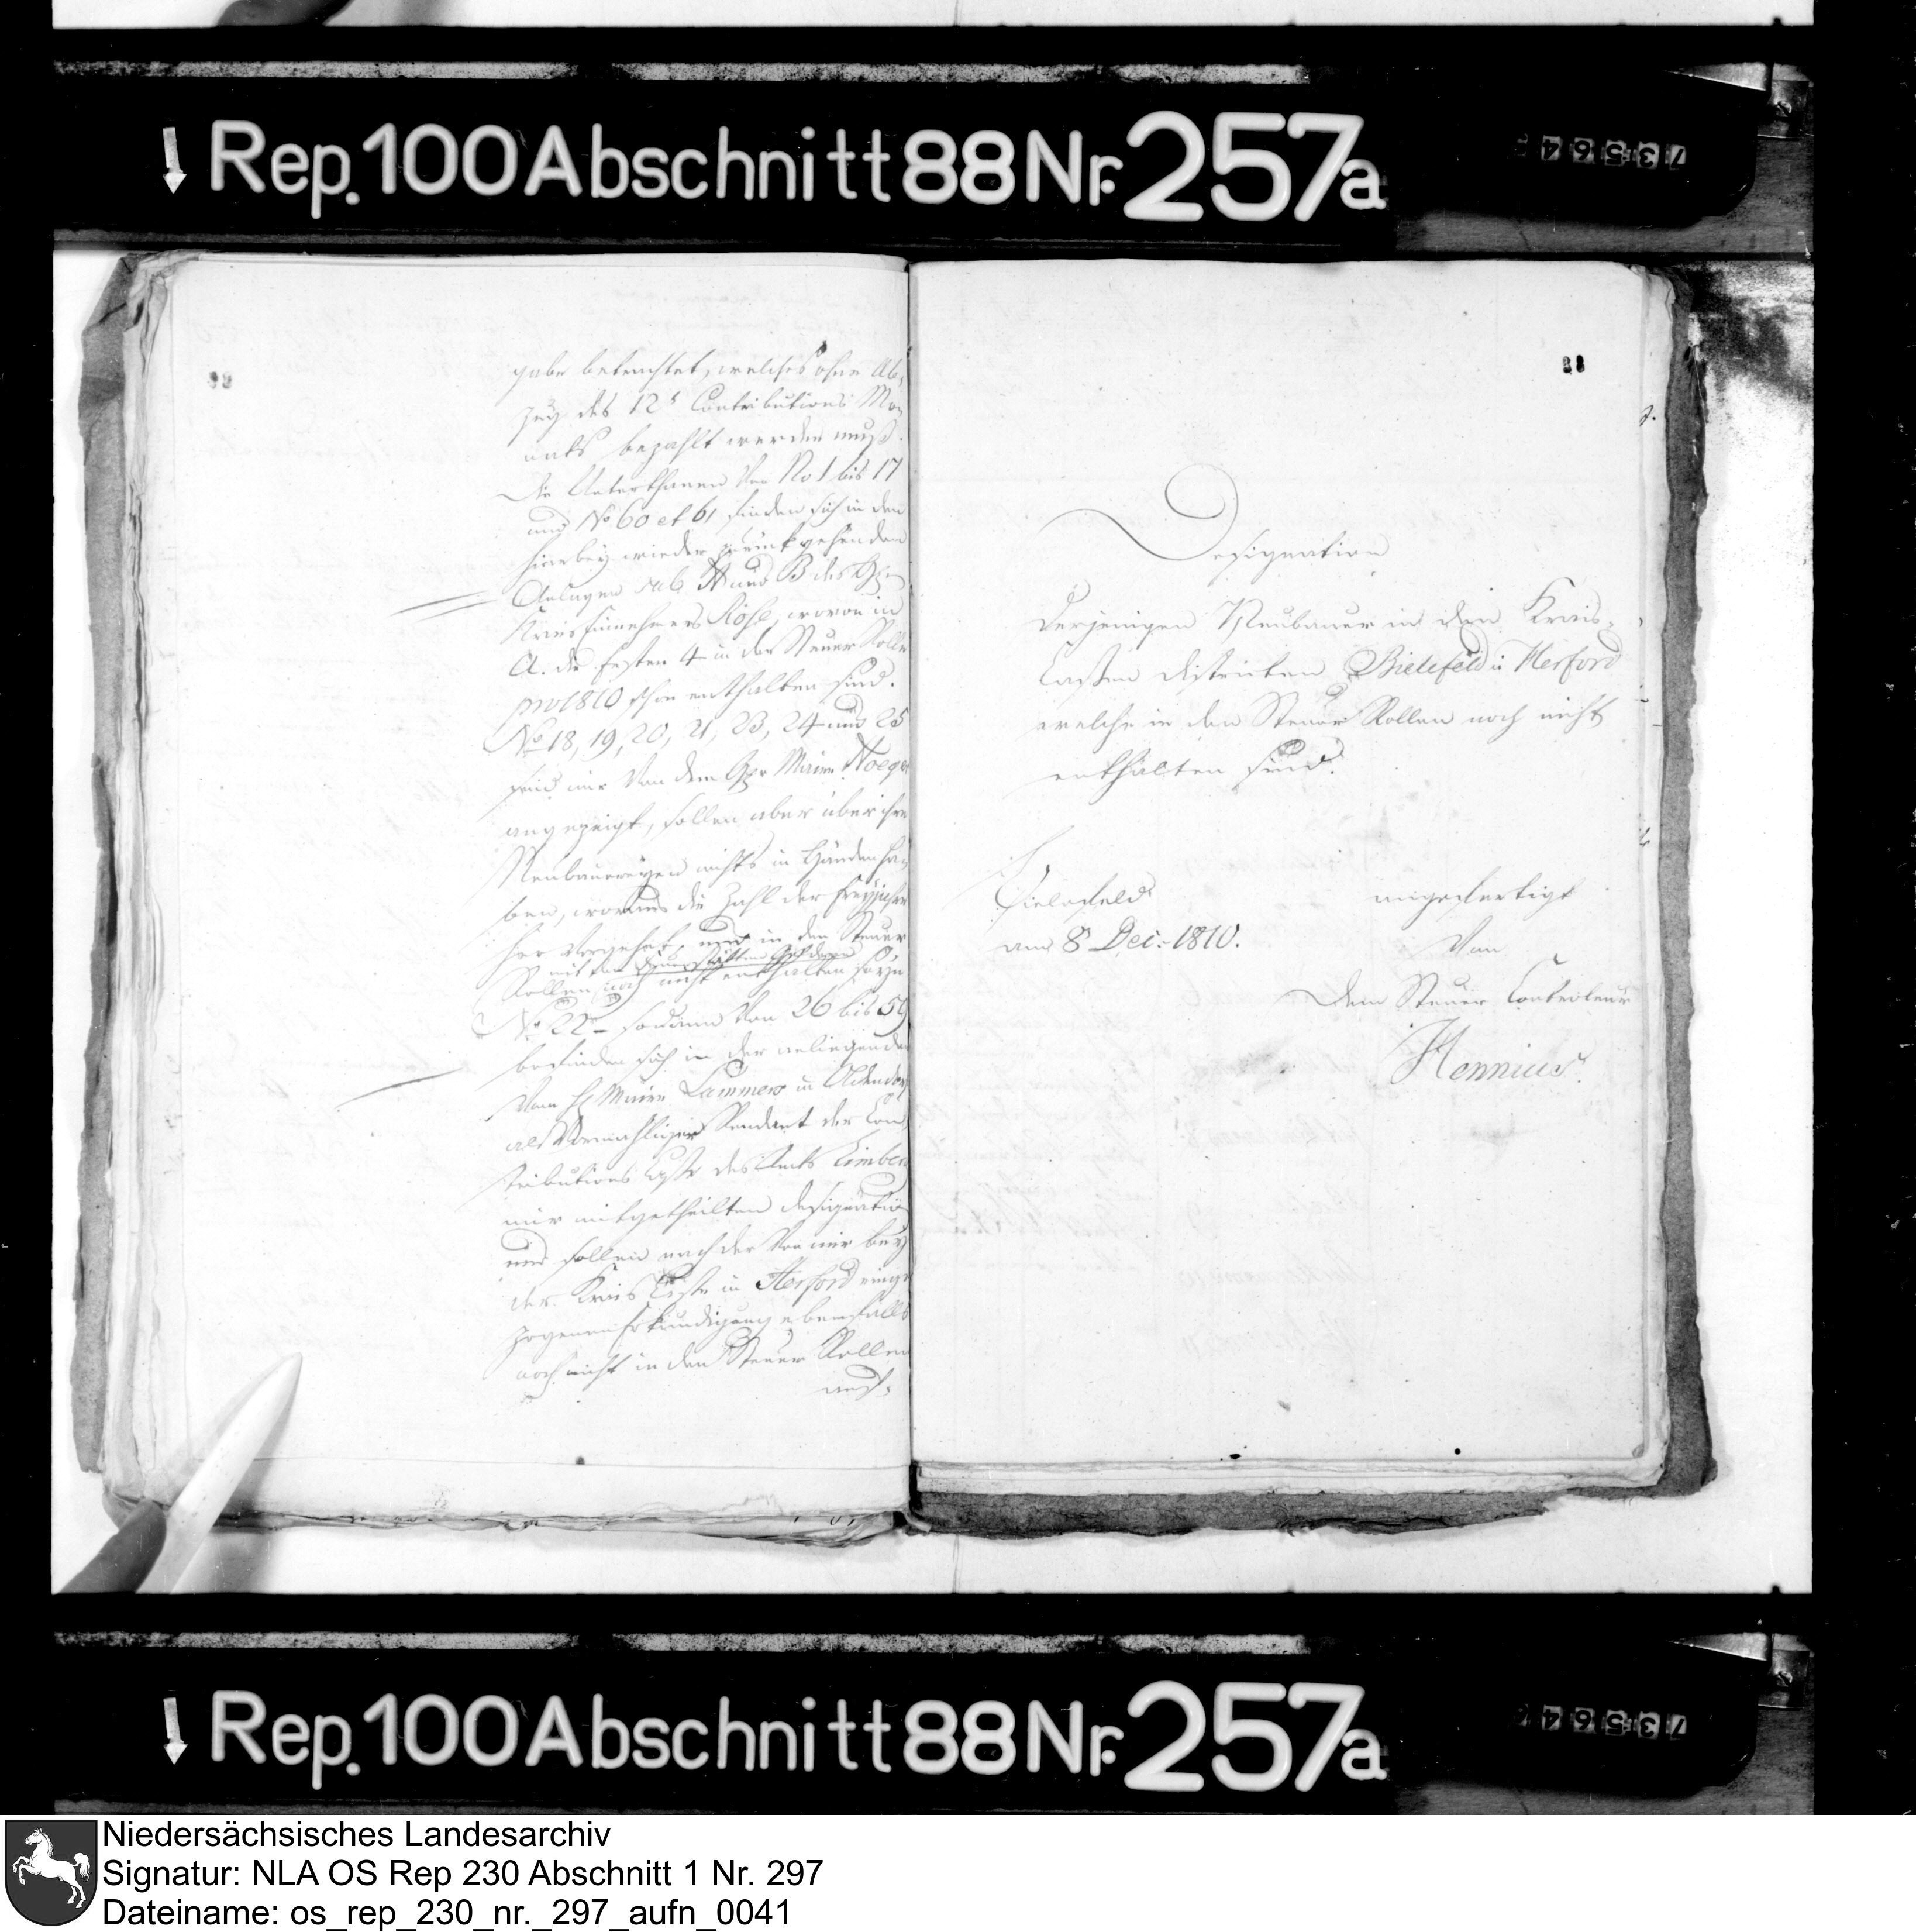 Rep. 100 Abschnitt 88 Nr. 257a
gabe betrachtet, welches ohne Ab,
zug des 12t Contributions Mon
ats bezahlt werden muß.
Die Unterthanen von No 1 bis 17
und No 60 et 61 finden sich in den
hierbey wieder zurückgehenden
Anlagen sub A und B des H
Kreis Einnehmers wovon in
A. die ersten 4 in der Steuer Rolle
pro 1810 schon enthalten sind.
No 18, 19, 20, 21, 23, 24 und 25
sind mir von dem Hr Maire
angezeigt, sollen aber über ihre
Neubauereyen nichts in Händen ha,
ben, woraus die Zahl der Freyjahre
her vorgehet, und in den Steuer
Rollen noch nicht enthalten seyn
No 22 - sodann von 26 bis 59
befinden sich in der anliegenden
vom H Maire Lammers in Oldendorf
als Rendant der Con
tributions Casse des Amts Limberg
mir mitgetheilten designation
und sollen nach der von mir bey
der Kreis Casse in Herford einge
zogenen Erkundigung ebenfalls
noch nicht in den Steuer Rollen
88
Designation
derjenigen Neubauer in den Kreis-
Cassen districten Bielefeld u Herford
welche in den Steuer Rollen noch nicht
enthalten sind.
Bielefeld
am 8 Dec: 1810.
angefertigt
von
dem Steuer Controleur
Hennius.
Rep. 100 Abschnitt 88 Nr. 257a
Niedersächsisches Landesarchiv
Signatur: NLA OS Rep 230 Abschnitt 1 Nr. 297
Dateiname: os_rep_230_nr._297_aufn_0041